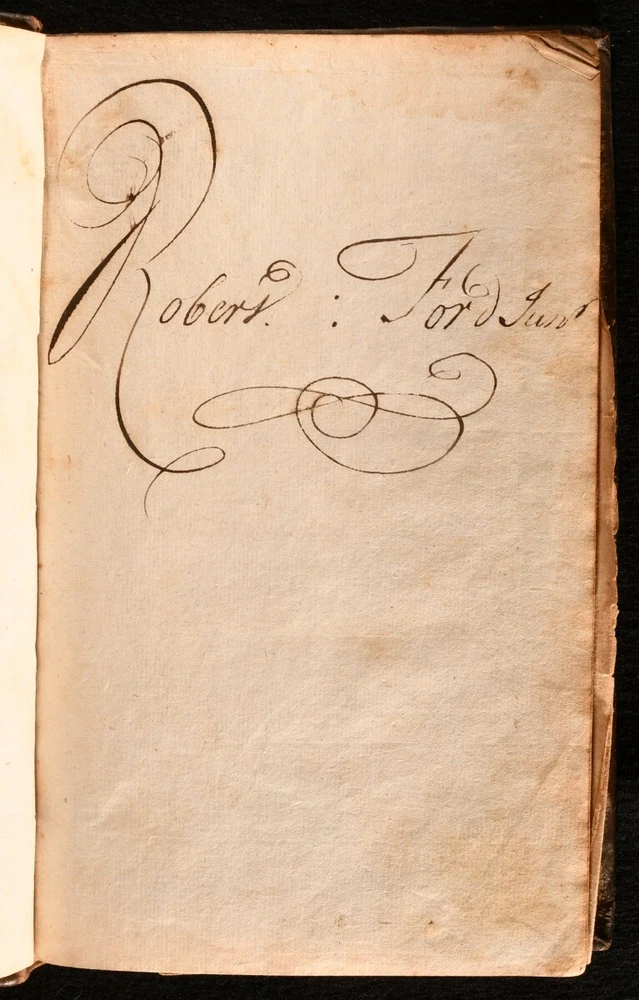 Robert. : Ford Junr